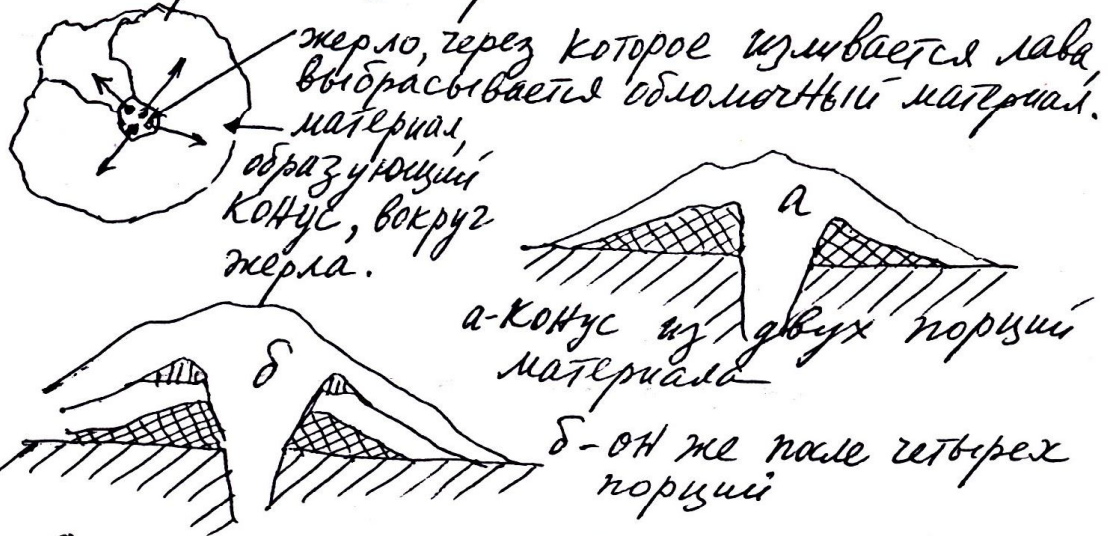 жерло, через которое изливается лава,
выбрасывается обломочный материал.
материал,
образующий
конус, вокруг
жерла.
а
а-конус из двух порций
материала
б
б-он же после четырех
порций